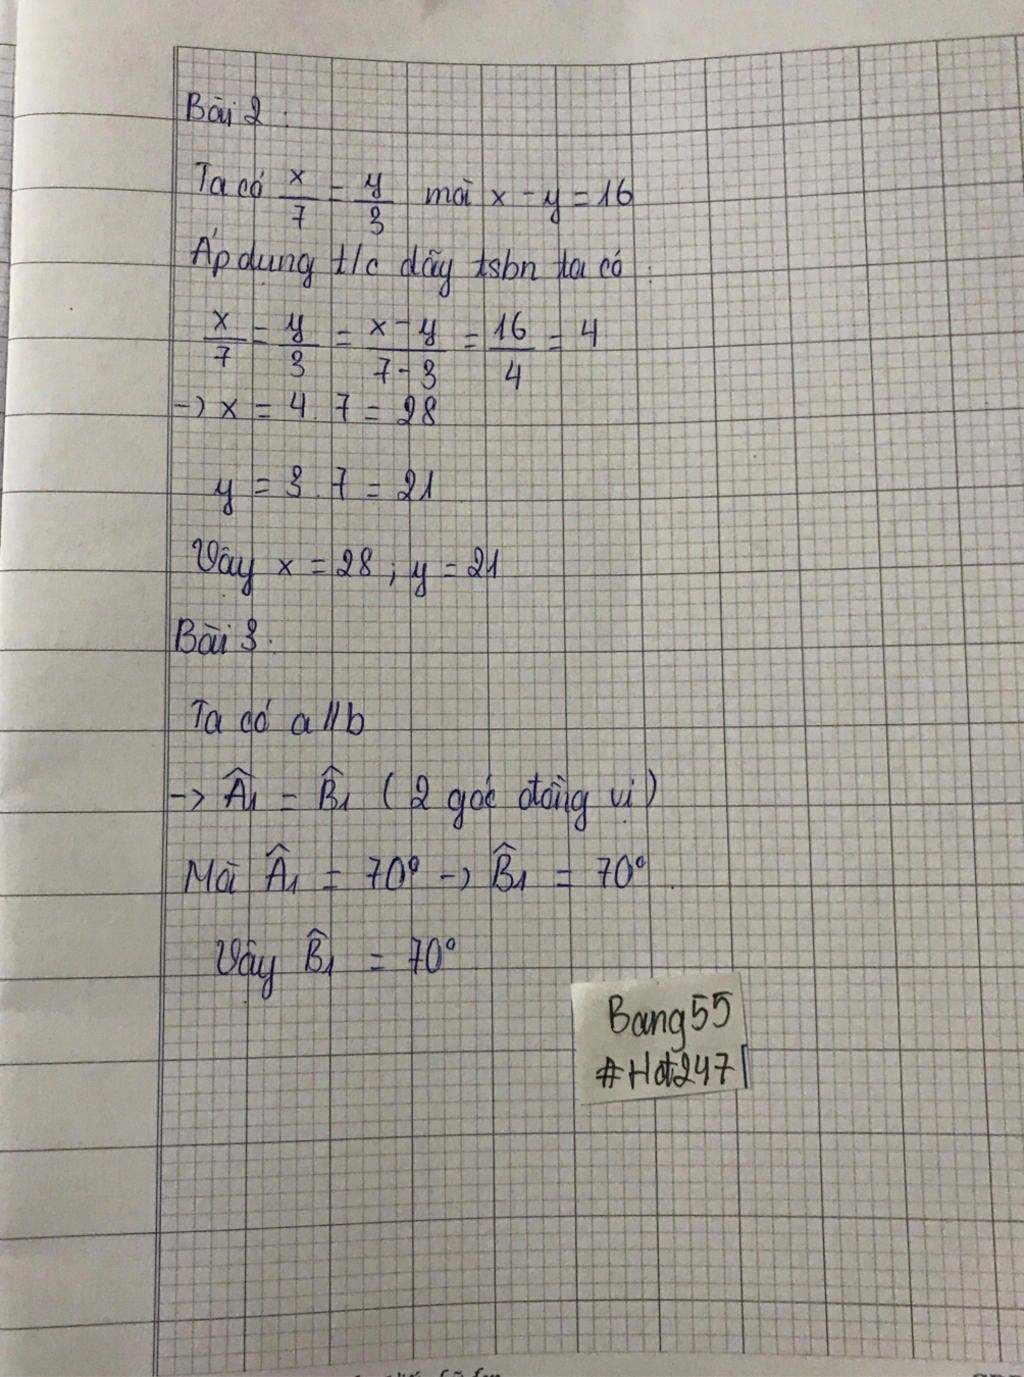 Bài 2:
Ta có x/7 = y/3 mà x - y = 16
Áp dụng t/c dãy tsbn ta có:
x/7 = y/3 = x-y/7-3 = 16/4 = 4
-> x = 4.7 = 28
y = 3.7 = 21
Vây x = 28; y = 21
Bài 3:
Ta có a//b
-> Â1 = B̂1 (2 góc đồng vị)
Mà Â1 = 70° -> B̂1 = 70°.
Vây B̂1 = 70°
Bang55
#Hot247